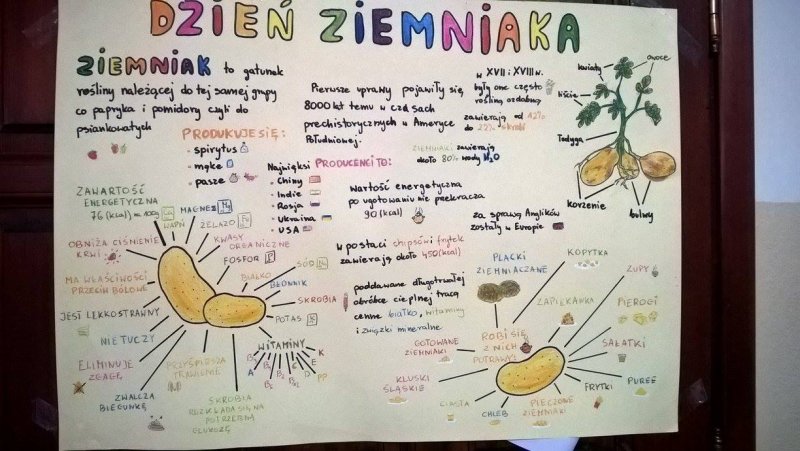 DZIEŃ ZIEMNIAKA
ZIEMNIAK to gatunek
rośliny należącej do tej samej grupy
co papryka i pomidory czyli do
psiankowatych
PRODUKUJE SIĘ:
• spirytus
• mąkę
• paszę
Pierwsze uprawy pojawiły się
8000 lat temu w czasach
prechistorycznych w Ameryce
Południowej.
w XVII i XVIII w.
były one często
rośliną ozdobną
zawierają od 12%
do 22% skrobi
ZIEMNIAKI zawierają
około 80% wody H2O
Najwięksi PRODUCENCI TO:
• Chiny
• Indie
• Rosja
• Ukraina
• USA
Wartość energetyczna
po ugotowaniu nie przekracza
90 (kcal)
za sprawą Anglików
zostały w Europie
w postaci chipsów i frytek
zawierają około 450 (kcal)
poddawane długotrwałej
obróbce cieplnej tracą
cenne białko, witaminy
i związki mineralne.
kwiaty
owoce
liście
łodyga
korzenie
bulwy
ZAWARTOŚĆ
ENERGETYCZNA
76 (kcal) na 100g
WAPŃ
MAGNEZ
ŻELAZO
KWASY
ORGANICZNE
FOSFOR
BIAŁKO
SÓD
BŁONNIK
SKROBIA
POTAS
WITAMINY
A
B1
B2
B3
B6
C
D
E
K
PP
OBNIŻA CIŚNIENIE
KRWI
MA WŁAŚCIWOŚCI
PRZECIWBÓLOWE
JEST LEKKOSTRAWNY
NIE TUCZY
ELIMINUJE
ZGAGĘ
ZWALCZA
BIEGUNKĘ
PRZYSPIESZA
TRAWIENIE
SKROBIA
ROZKŁADA SIĘ NA
POTRZEBNĄ
GLUKOZĘ
ROBI SIĘ
Z NICH
POTRAWY:
PLACKI
ZIEMNIACZANE
KOPYTKA
ZAPIEKANKA
ZUPY
PIEROGI
SAŁATKI
PUREE
FRYTKI
PIECZONE
ZIEMNIAKI
CHLEB
CIASTA
KLUSKI
ŚLĄSKIE
GOTOWANE
ZIEMNIAKI